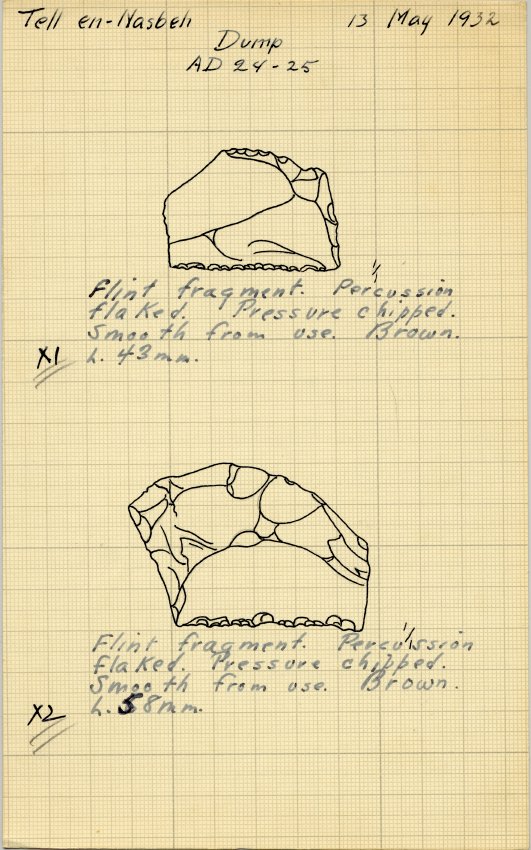 Tell en-Nasbeh 13 May 1932
Dump
AD 24-25
1/1
Flint fragment. Percussion
flaked. Pressure chipped.
Smooth from use. Brown.
X1 L. 43mm.
1/1
Flint fragment. Percussion
flaked. Pressure chipped.
Smooth from use. Brown.
X2 L. 58mm.